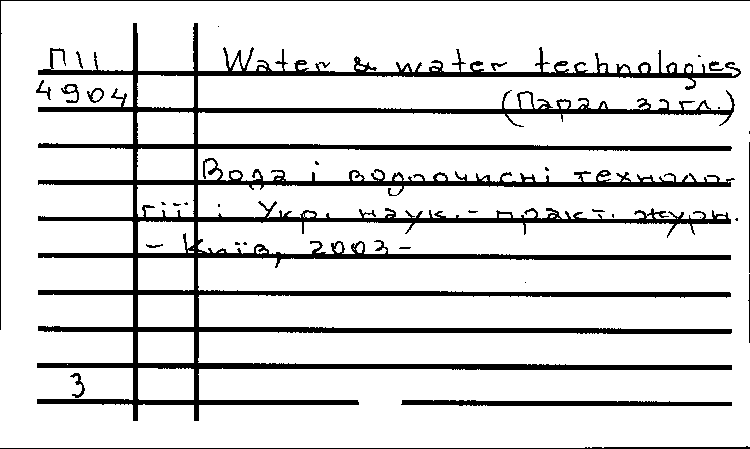 П11 Water & water technologies
4904 (Парал. загл.)
Вода і водоочисні техноло-
гії : Укр. наук.- практ. журн.
- Київ, 2003 -
3